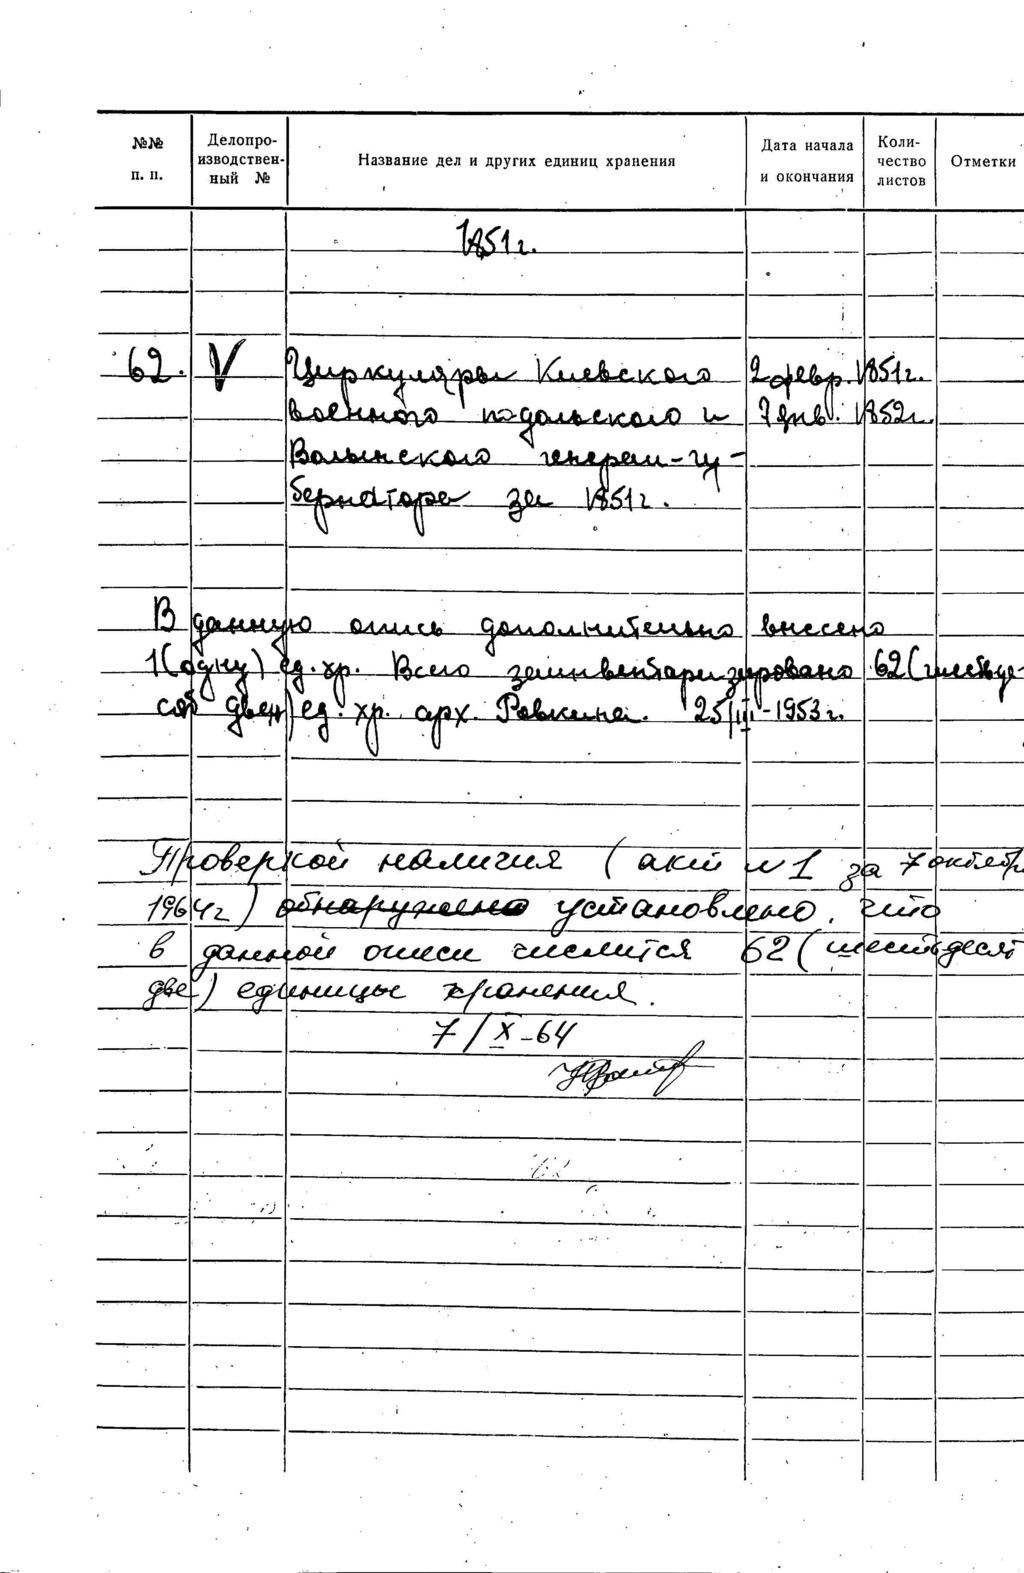 №№ п. п. Делопро-изводствен-ный № Название дел и других единиц хранения Дата начала и окончания Коли-чество листов Отметки
1851г.
62. V Циркуляры Киевского 2 февр. 1851г.
военного подольского и 7 янв. 1852г.
Волынского генерал-гу-
бернатора за 1851г.
В данную опись дополнительно внесено
1(одну) ед. хр. Всего заинвентаризировано 62 (шестьде-
сят две) ед. хр. арх. Ровкина. 25/III-1953г.
Проверкой наличия (акт № 1 за 7 октябр
1964г) обнаружено установлено, что
в данной описи числится 62 (шестьдесят
две) единицы хранения.
7/X-64